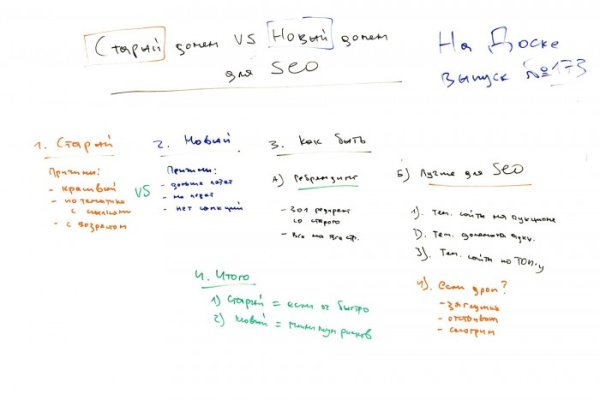 Старый домен VS Новый домен
для SEO
На Доске
выпуск №173
1. Старый
Причины:
- красивый
- по тематике
с ссылками
- с возрастом
VS
2. Новый
Причины:
- дольше
- на
- нет санкций
3. Как быть
А) Ребрендинг
- 301 редирект
со старого
- Все на все стр.
Б) Лучше для SEO
1). Тем. сайты на аукционе
2). Тем. домены аукц.
3). Тем. сайты по ТОП-у
4). Если дроп?
- заглушка
- отстоять
- смотрим
4. Итого
1) Старый = если ок быстро
2) Новый = минимум рисков